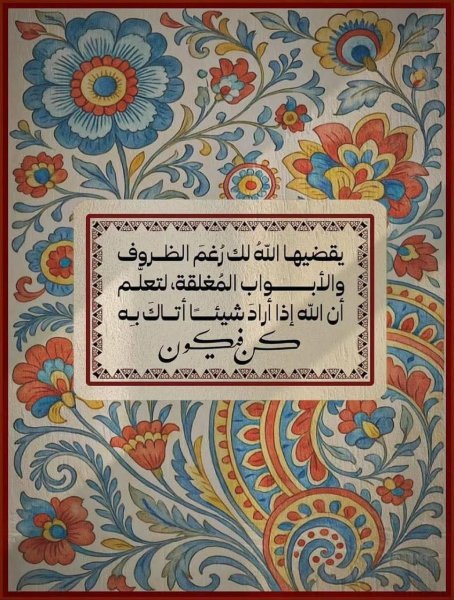 يقضيها اللهُ لك رُغمَ الظروف
والأبواب المُغلقة، لتعلم
أن الله إذا أرادَ شيئًا أتاكَ به
كن فيكون